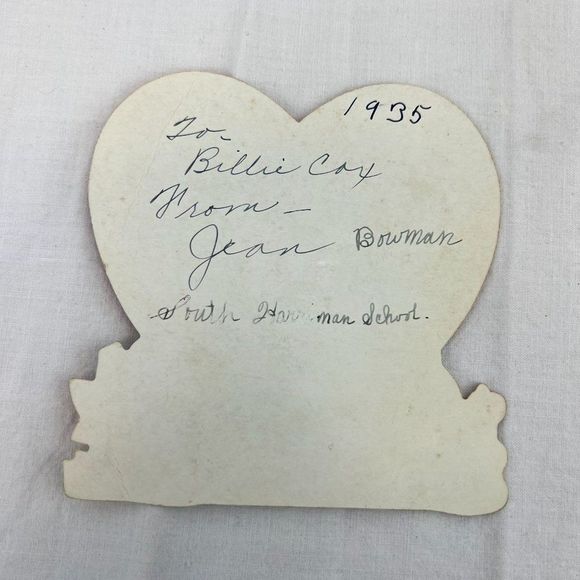 1935
To-
Billie Cox
From -
Jean Bowman
South Harriman School.